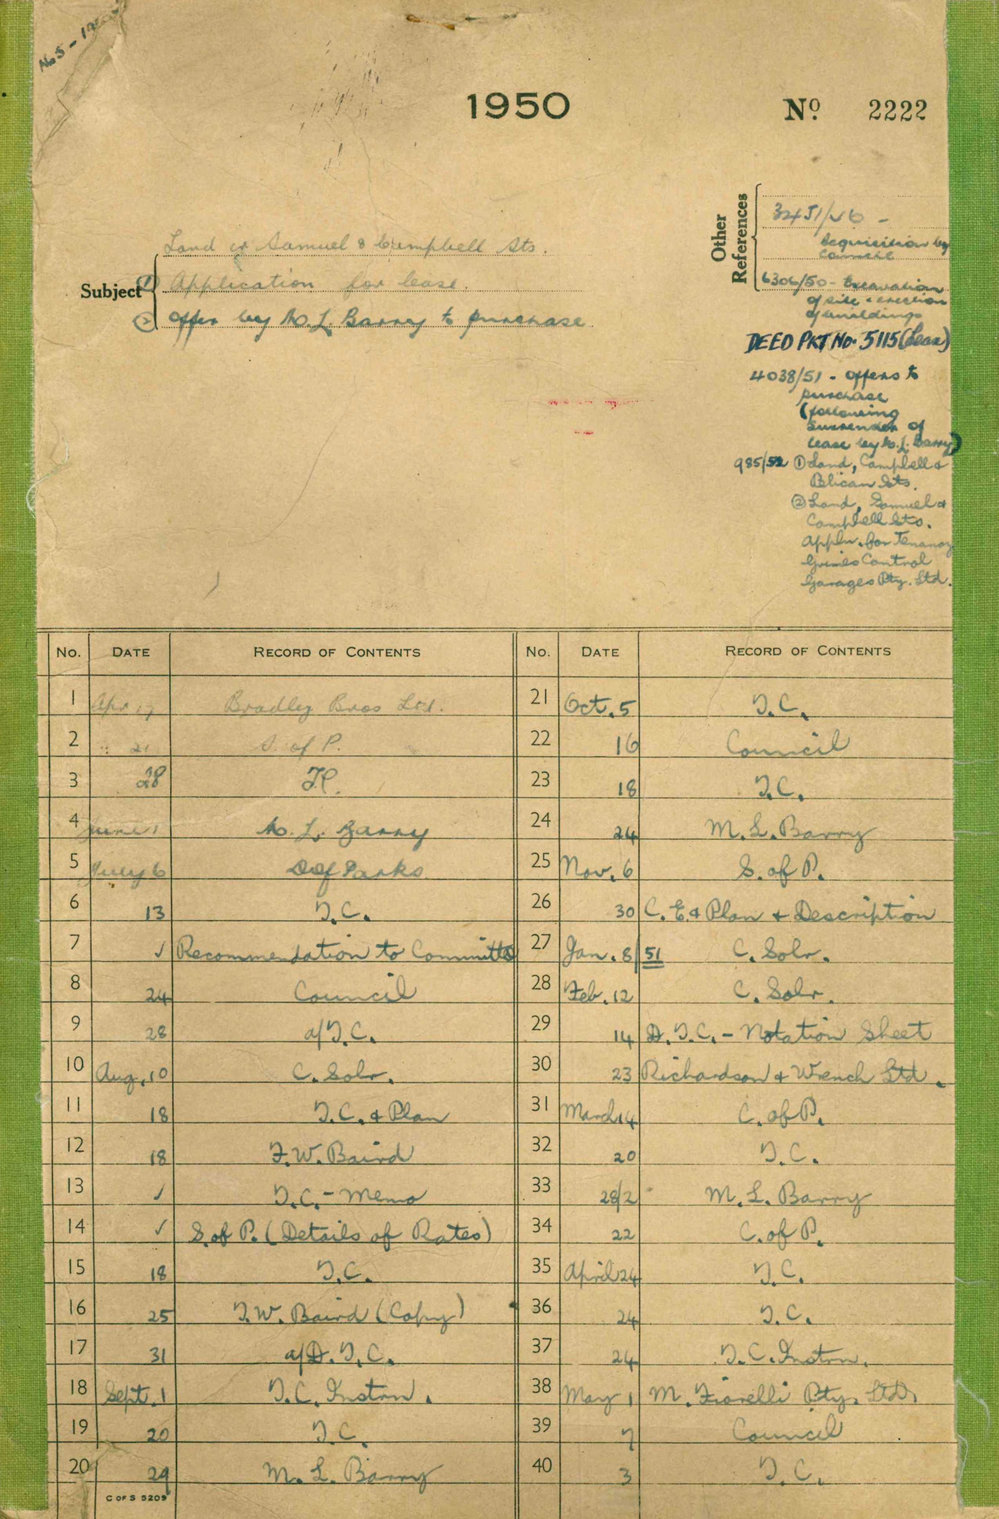 No 5 - 19
1950
No. 2222
Other References
3451/46 -
Acquisition by
Council
6306/50 - Excavation
of site & erection
of buildings
DEED PKT No. 5115 (Lease)
4038/51 - offers to
purchase
(following
surrender of
lease by M. L. Barry)
985/52 ① Land, Campbell &
Pelican Sts.
② Land, Samuel &
Campbell Sts.
Appln. for Tenancy
Grimes Control
Garages Pty. Ltd.
Subject
Land cr Samuel & Campbell Sts.
① Application for lease.
② Offer by M. L. Barry to purchase
No. DATE RECORD OF CONTENTS
1 Apr 17 Bradley Bros Ltd.
2 " 21 S. of P.
3 28 T.C.
4 June 1 M. L. Barry
5 July 6 D of Parks
6 13 T.C.
7 ✓ Recommendation to Committee
8 24 Council
9 28 a/T.C.
10 Aug. 10 C. Solr.
11 18 T.C. & Plan
12 18 F.W. Baird
13 ✓ T.C. - Memo
14 ✓ S. of P. (Details of Rates)
15 18 T.C.
16 25 F.W. Baird (Copy)
17 31 a/D.T.C.
18 Sept. 1 T.C. Instrn.
19 20 T.C.
20 29 M. L. Barry
C OF S 5209
No. DATE RECORD OF CONTENTS
21 Oct. 5 T.C.
22 16 Council
23 18 T.C.
24 24 M. L. Barry
25 Nov. 6 S. of P.
26 30 C.E. & Plan & Description
27 Jan. 8/51 C. Solr.
28 Feb. 12 C. Solr.
29 14 D.T.C. - Notation Sheet
30 23 Richardson & Wrench Ltd.
31 March 14 C. of P.
32 20 T.C.
33 28/2 M. L. Barry
34 22 C. of P.
35 April 24 T.C.
36 24 T.C.
37 24 T.C. Instrn.
38 May 1 M. Fiorelli Pty. Ltd.
39 7 Council
40 3 T.C.